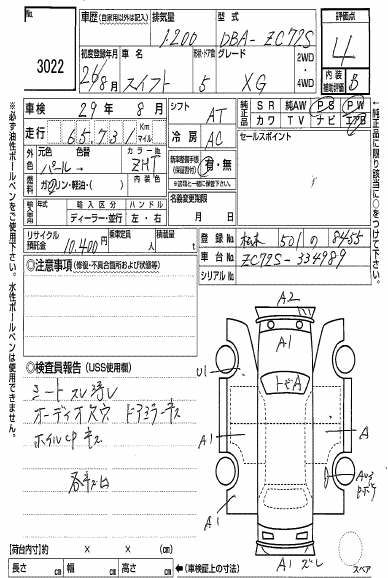 No. 3022
車歴 (自家用以外は記入) 排気量 型式 評価点
1200 DBA-ZC72S 4
初度登録年月 車名 形状・ドア数 グレード 2WD・4WD
26/8月 スイフト 5 XG
内装補助評価 B
車検 29年8月 シフト AT
純正品 SR 純AW PS PW
カワ TV ナビ エアB
走行 65,731 Km マイル 冷房 AC
セールスポイント
外色 元色 色替 カラーNo.
パール→ ZHT
新車整備手帳(保証書付) 有・無
※該当と一緒に保管下さい
燃料 ガソリン・軽油・( ) 内装色
名義変更期限
月 日
輸入車 年式 輸入区分 ハンドル
ディーラー・並行 左・右
リサイクル預託金 10,400円 乗車定員 人 積載量 t
登録No. 501 の 8455
車台No. ZC72S-334989
シリアルNo.
◎注意事項 (修復・不具合箇所および状態等)
◎検査員報告 (USS使用欄)
シートスレ汚レ
オーディオ穴 ドアミラーキズ
ホイルCPキズ
※必ず油性ボールペンをご使用下さい。水性ボールペンは使用できません。
←純正品に限り該当に○をつけて下さい。
A2
A1
U1
トビA
A1
A
A1
A1 ズレ
スペア
[荷台内寸]約 × × (cm)
長さ cm 幅 cm 高さ cm ←(車検証上の寸法)